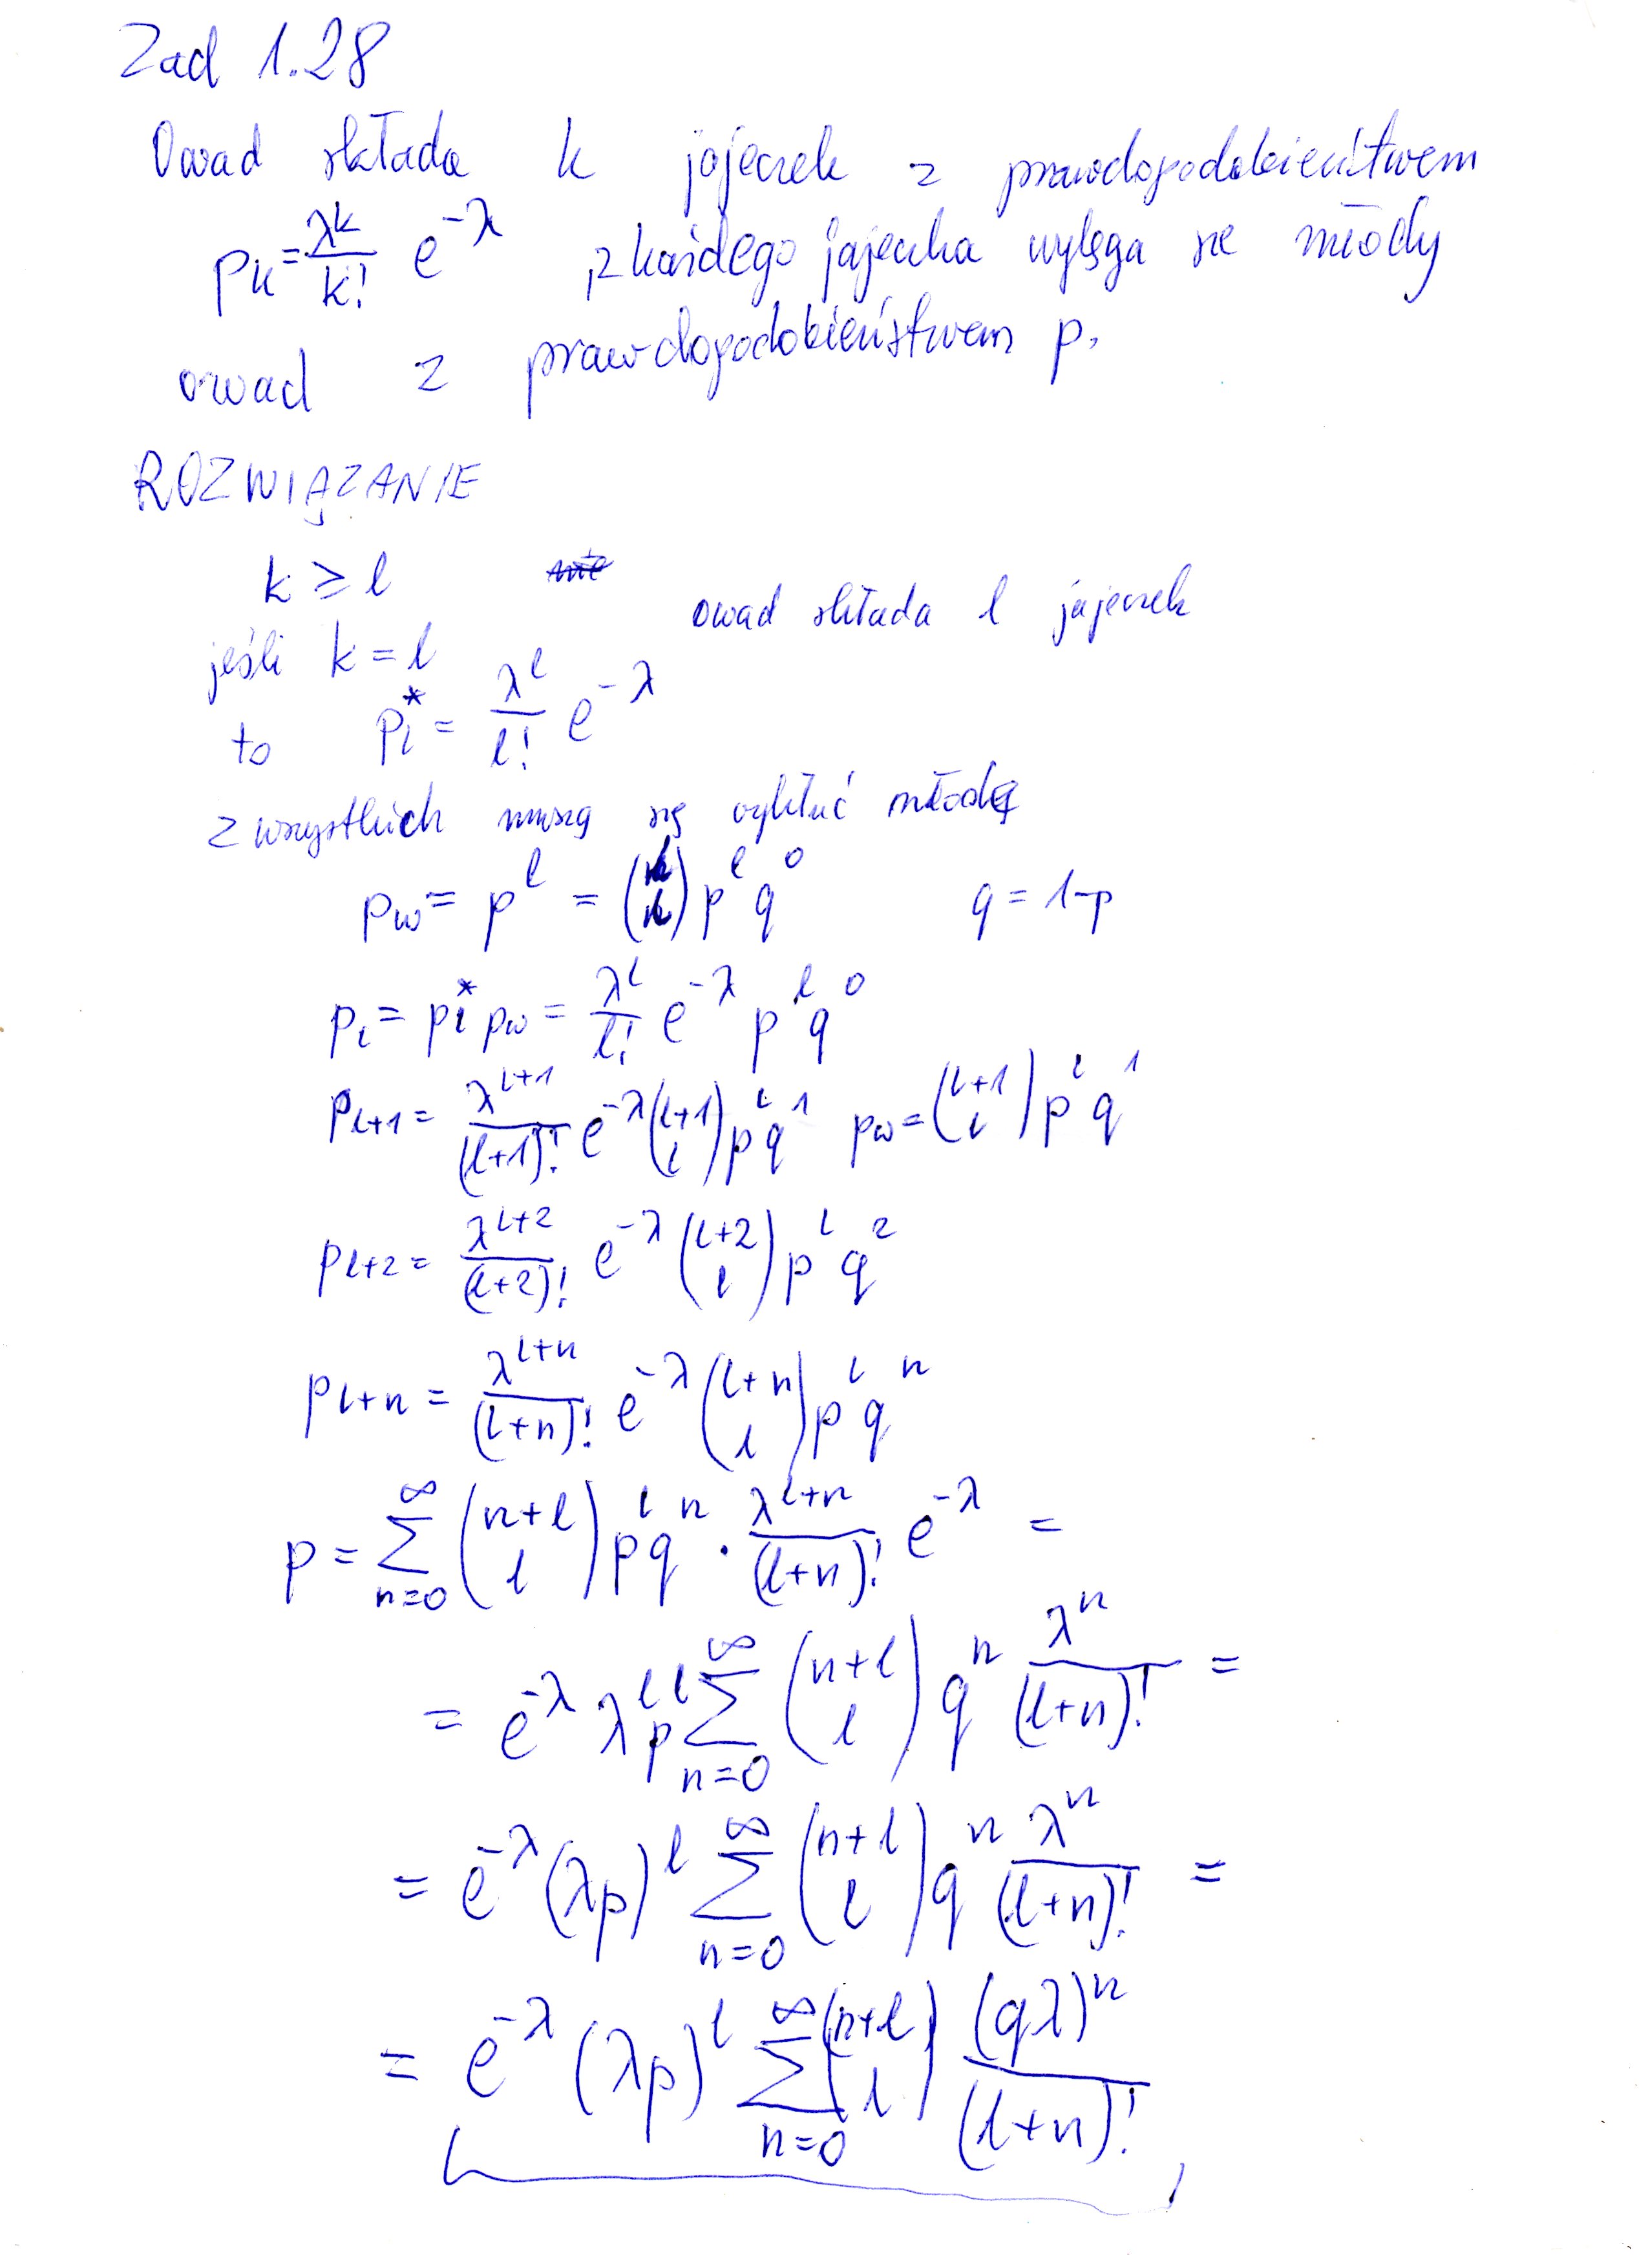 Zad 1.28
Owad składa k jajeczek z prawdopodobieństwem
p_k = λ^k/k! e^{-λ} , z każdego jajeczka wylęga się młody
owad z prawdopodobieństwem p.
ROZWIĄZANIE
k ≥ l
jeśli k = l owad składa l jajeczek
to p_l^* = λ^l/l! e^{-λ}
z wszystkich muszą się wykluć młode
p_w = p^l = p^l q^0 q = 1-p
p_l = p_l^* p_w = λ^l/l! e^{-λ} p^l q^0
p_{l+1} = λ^{l+1}/(l+1)! e^{-λ} (l+1 l) p^l q^1 p_w = (l+1 l) p^l q^1
p_{l+2} = λ^{l+2}/(l+2)! e^{-λ} (l+2 l) p^l q^2
p_{l+n} = λ^{l+n}/(l+n)! e^{-λ} (l+n l) p^l q^n
p = ∑_{n=0}^{∞} (n+l l) p^l q^n · λ^{l+n}/(l+n)! e^{-λ} =
= e^{-λ} λ^l p^l ∑_{n=0}^{∞} (n+l l) q^n λ^n/(l+n)! =
= e^{-λ} (λp)^l ∑_{n=0}^{∞} (n+l l) q^n λ^n/(l+n)! =
= e^{-λ} (λp)^l ∑_{n=0}^{∞} (n+l l) (qλ)^n/(l+n)!